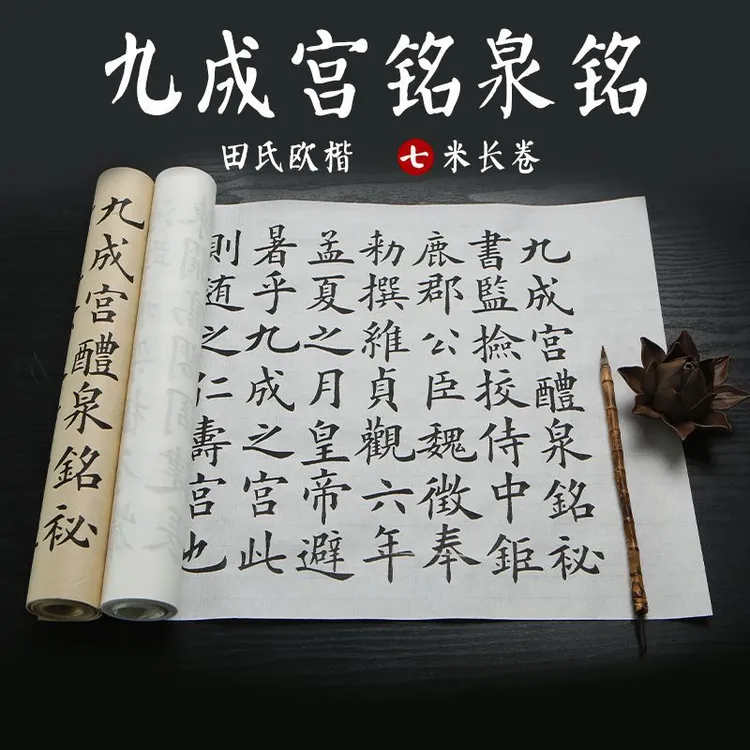 九成宫铭泉铭
田氏欧楷 七米长卷
九成宫醴泉銘祕
書監撿挍侍中鉅
鹿郡公臣魏徵奉
勑撰維貞觀六年
孟夏之月皇帝避
暑乎九成之宫此
則随之仁壽宫也
九成宫醴泉銘祕